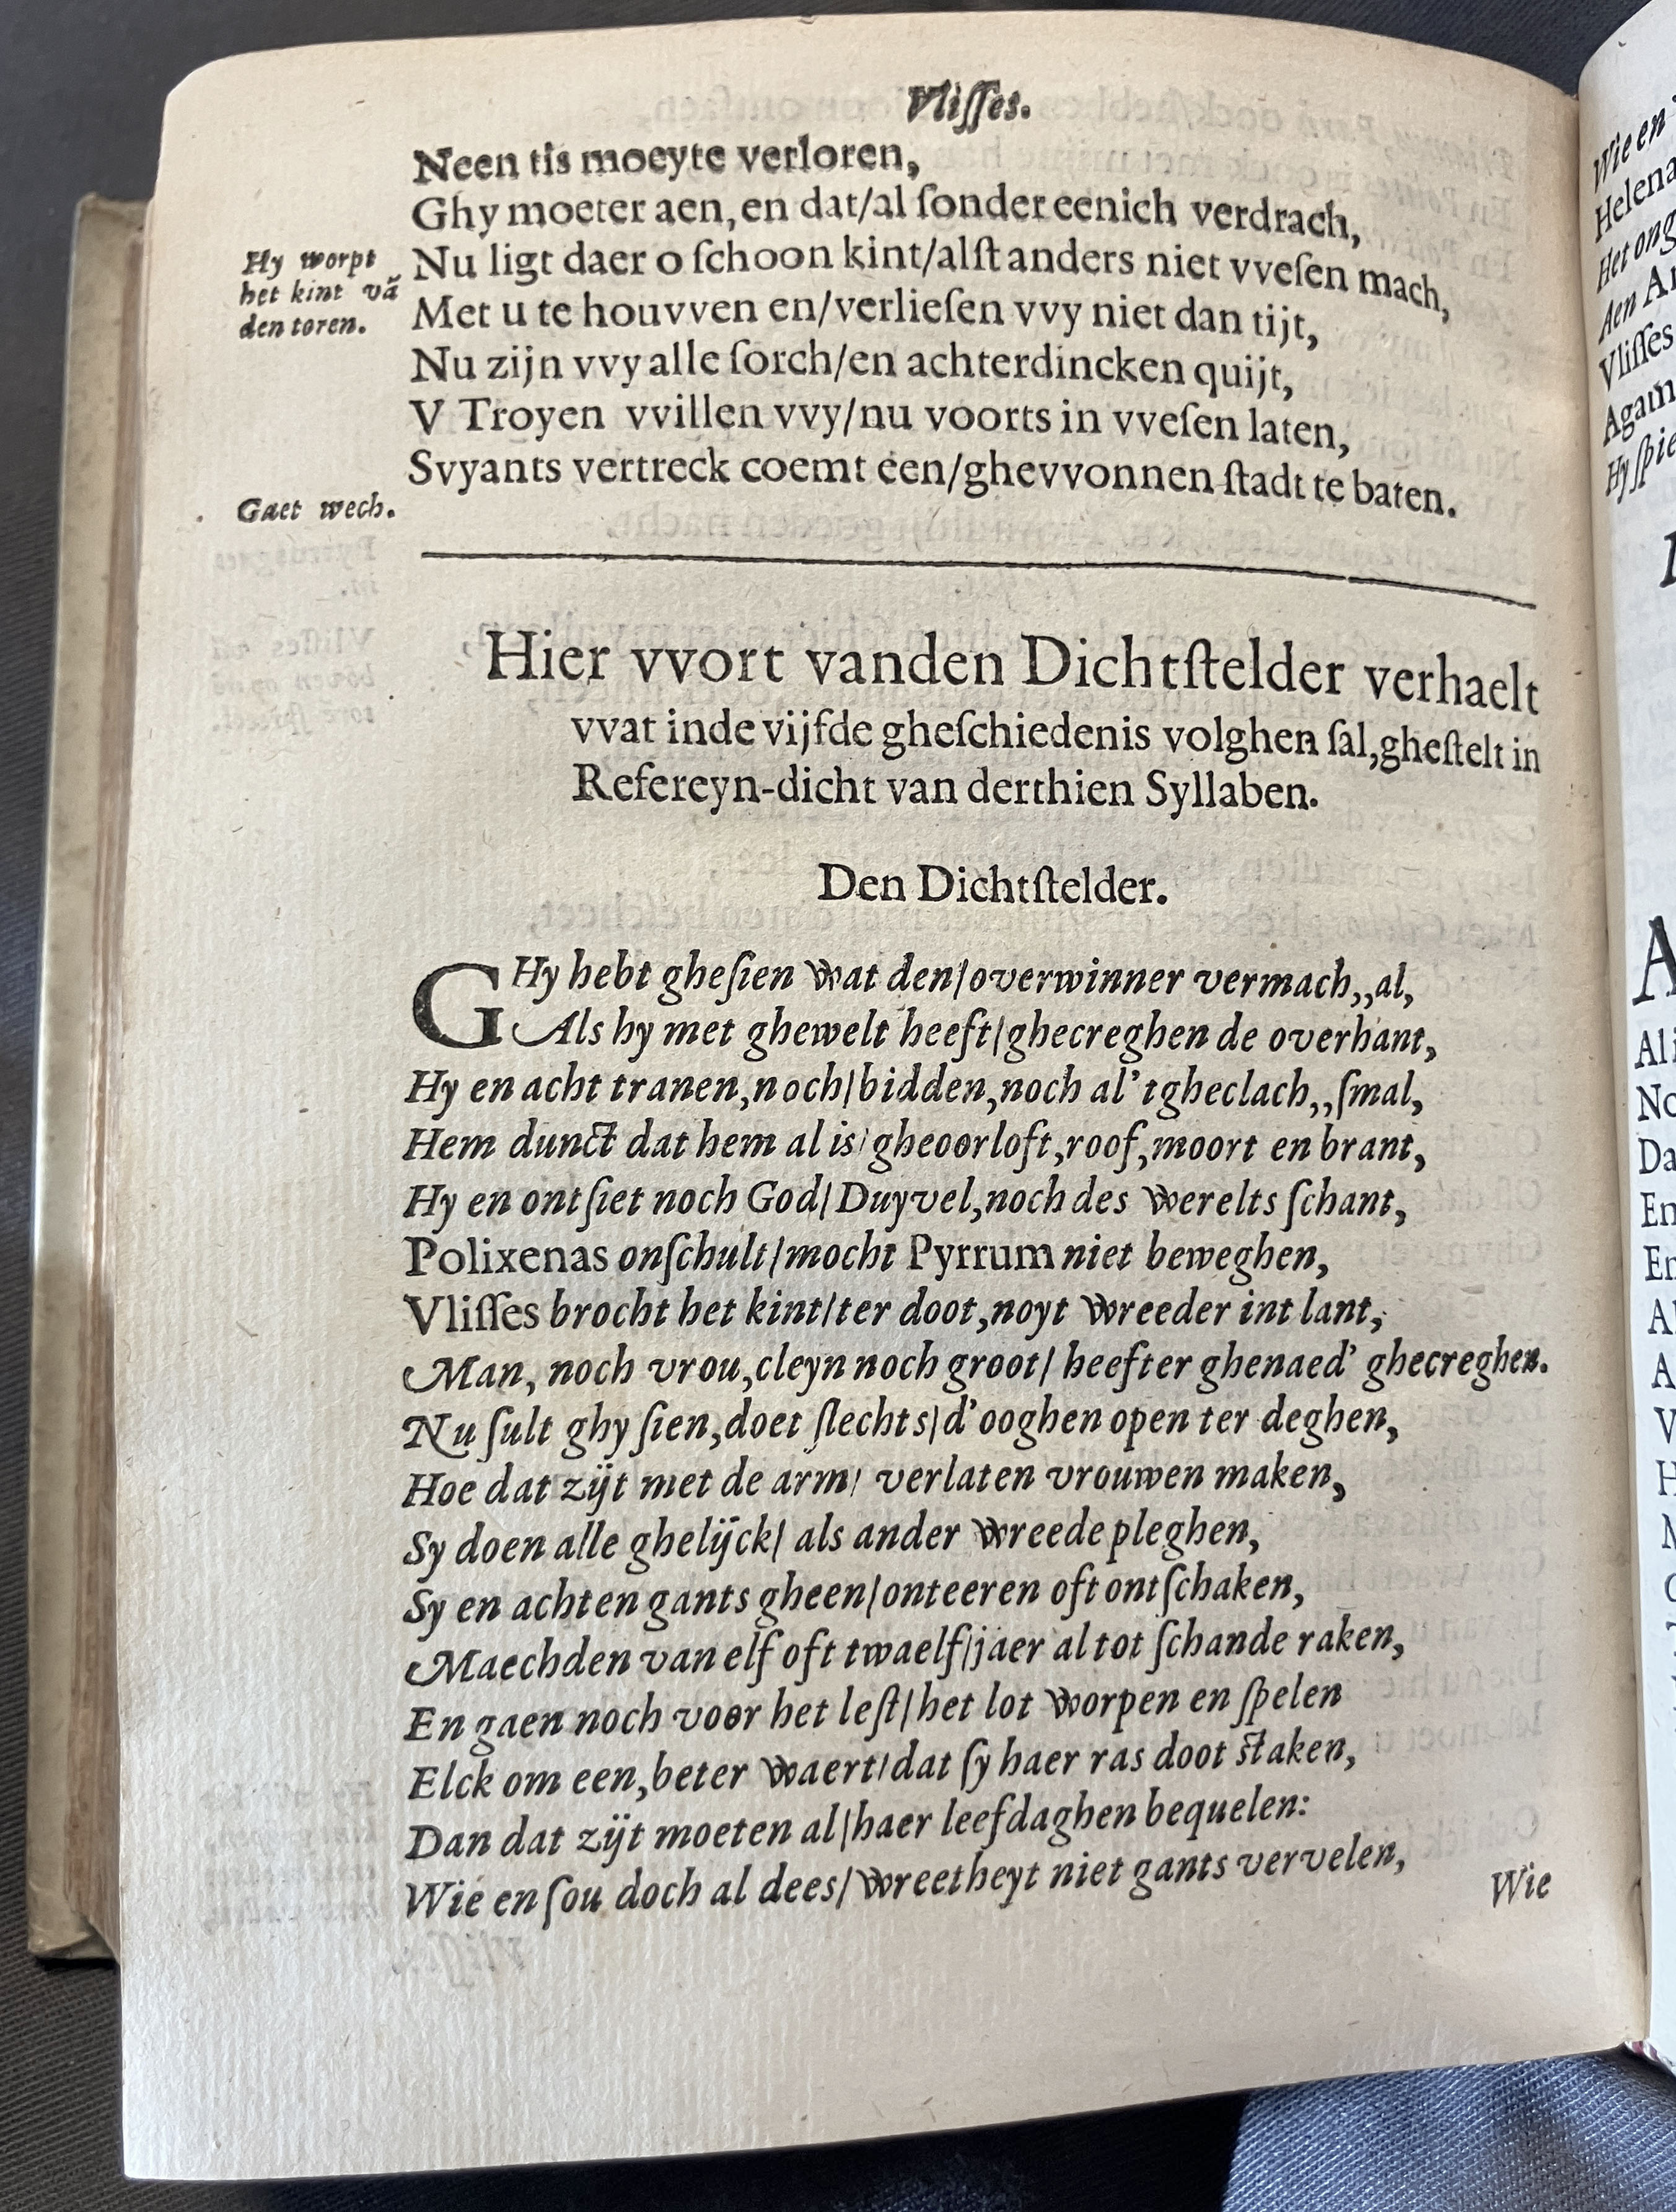 Vliſſes.
Neen tis moeyte verloren,
Ghy moeter aen, en dat/al ſonder eenich verdrach,
Hy worpt
het kint vā
den toren.
Nu ligt daer o ſchoon kint/alſt anders niet vveſen mach,
Met u te houvven en/verlieſen vvy niet dan tijt,
Nu zijn vvy alle ſorch/en achterdincken quijt,
V Troyen vvillen vvy/nu voorts in vveſen laten,
Svyants vertreck coemt een/ghevvonnen ſtadt te baten.
Gaet wech.
Hier vvort vanden Dichtſtelder verhaelt
vvat inde vijfde gheſchiedenis volghen ſal, gheſtelt in
Refereyn-dicht van derthien Syllaben.
Den Dichtſtelder.
GHy hebt gheſien wat den/overwinner vermach,,al,
Als hy met ghewelt heeft/ghecreghen de overhant,
Hy en acht tranen, noch/bidden, noch al'tgheclach,,ſmal,
Hem dunct dat hem al is/gheoorloft, roof, moort en brant,
Hy en ontſiet noch God/Duyvel, noch des werelts ſchant,
Polixenas onſchult/mocht Pyrrum niet beweghen,
Vliſſes brocht het kint/ter doot, noyt wreeder int lant,
Man, noch vrou, cleyn noch groot/ heefter ghenaed' ghecreghen.
Nu ſult ghy ſien, doet ſlechts/d'ooghen open ter deghen,
Hoe dat zijt met de arm/ verlaten vrouwen maken,
Sy doen alle ghelijck/ als ander wreede pleghen,
Sy en achten gants gheen/onteeren oft ontſchaken,
Maechden van elf oft twaelf/jaer al tot ſchande raken,
En gaen noch voor het leſt/het lot worpen en ſpelen
Elck om een, beter waert/dat ſy haer ras doot ſtaken,
Dan dat zijt moeten al/haer leefdaghen bequelen:
Wie en ſou doch al dees/wreetheyt niet gants vervelen,
Wie
Wie en
Helena
Het ong
Aen
Vliſſes
Agam
Hy ſpie